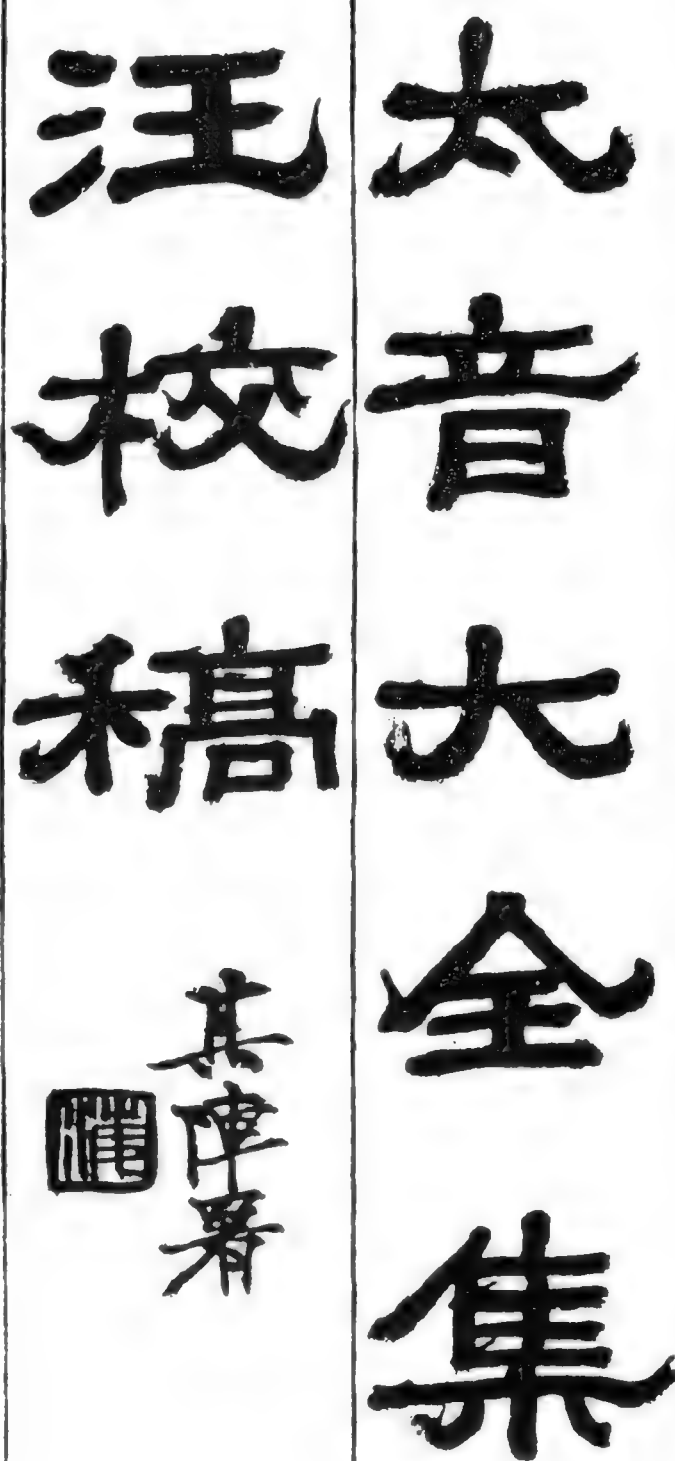 太音大全集
汪校稿
其署